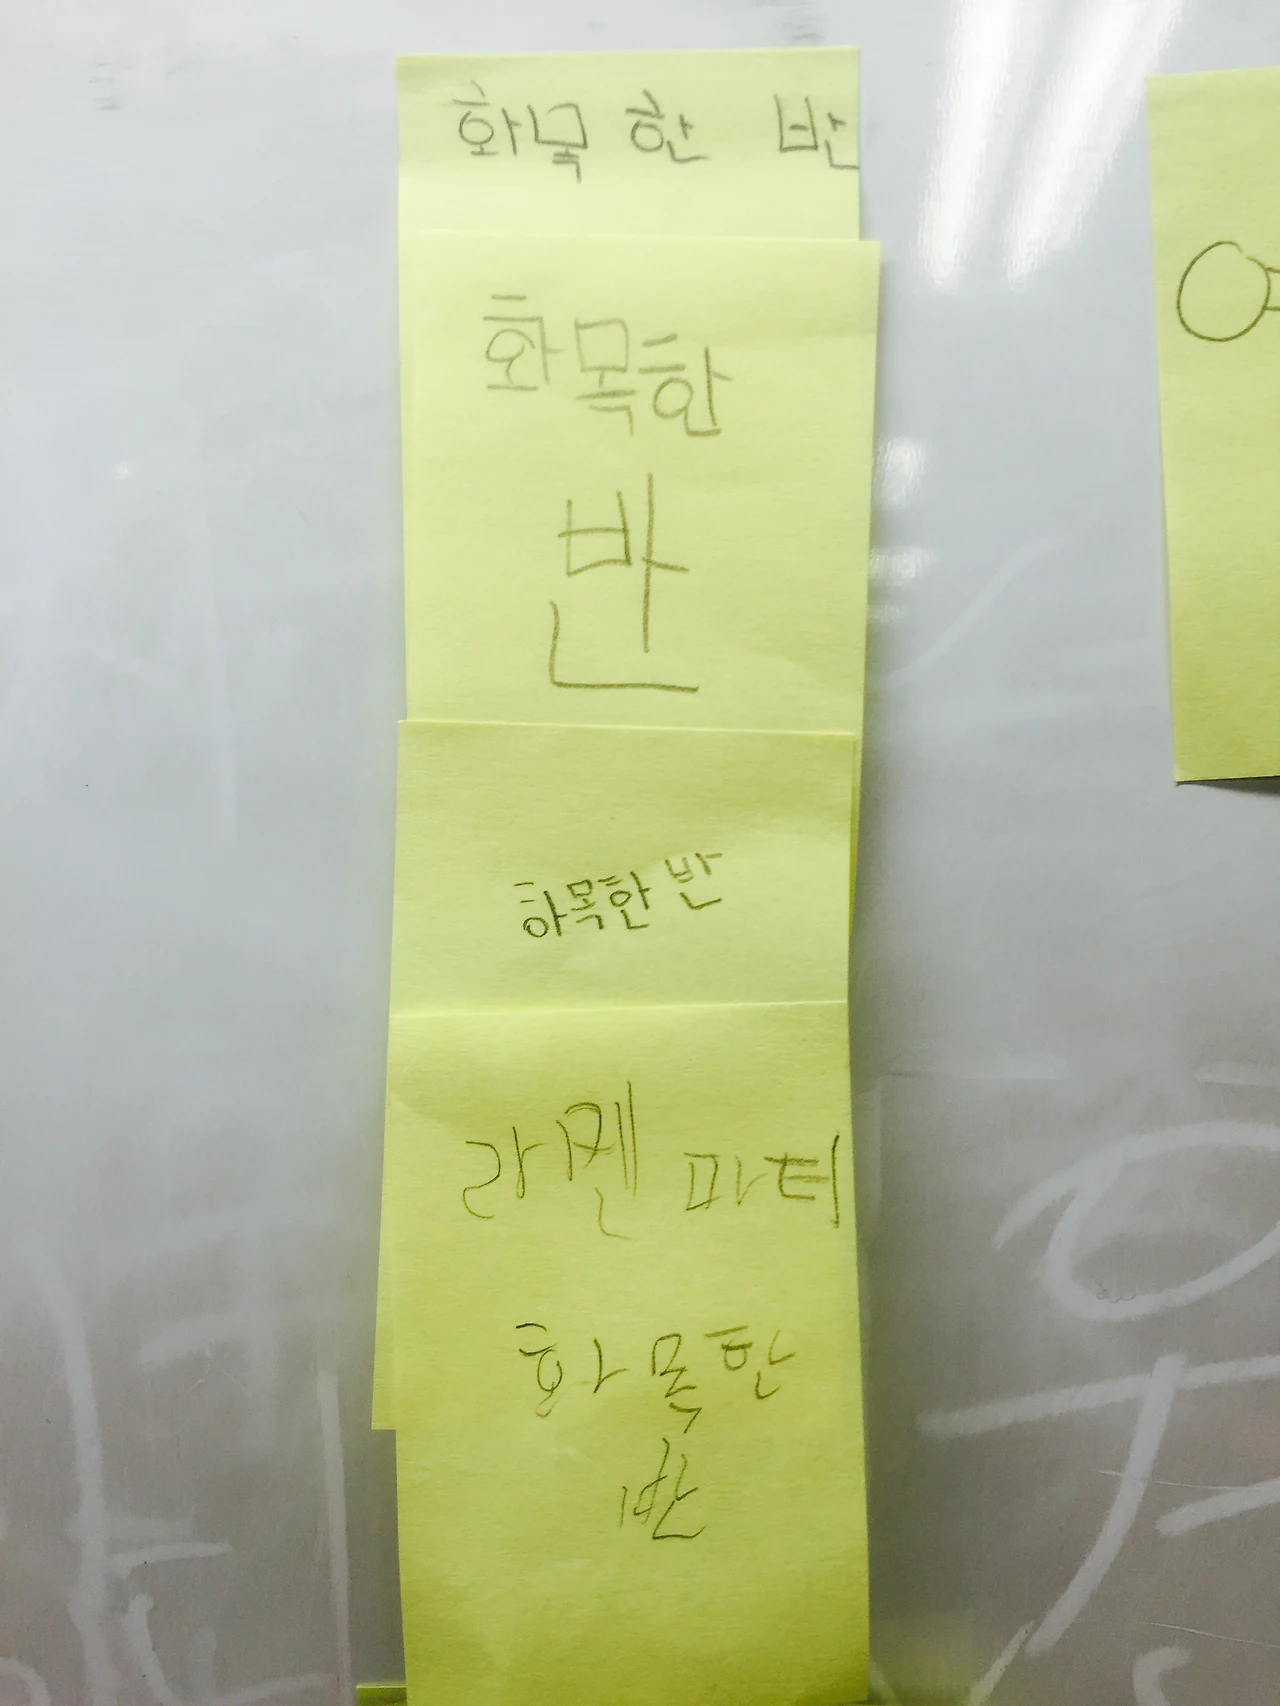 화목한 반
화목한
반
하목한 반
라멘 파티
화목한
반